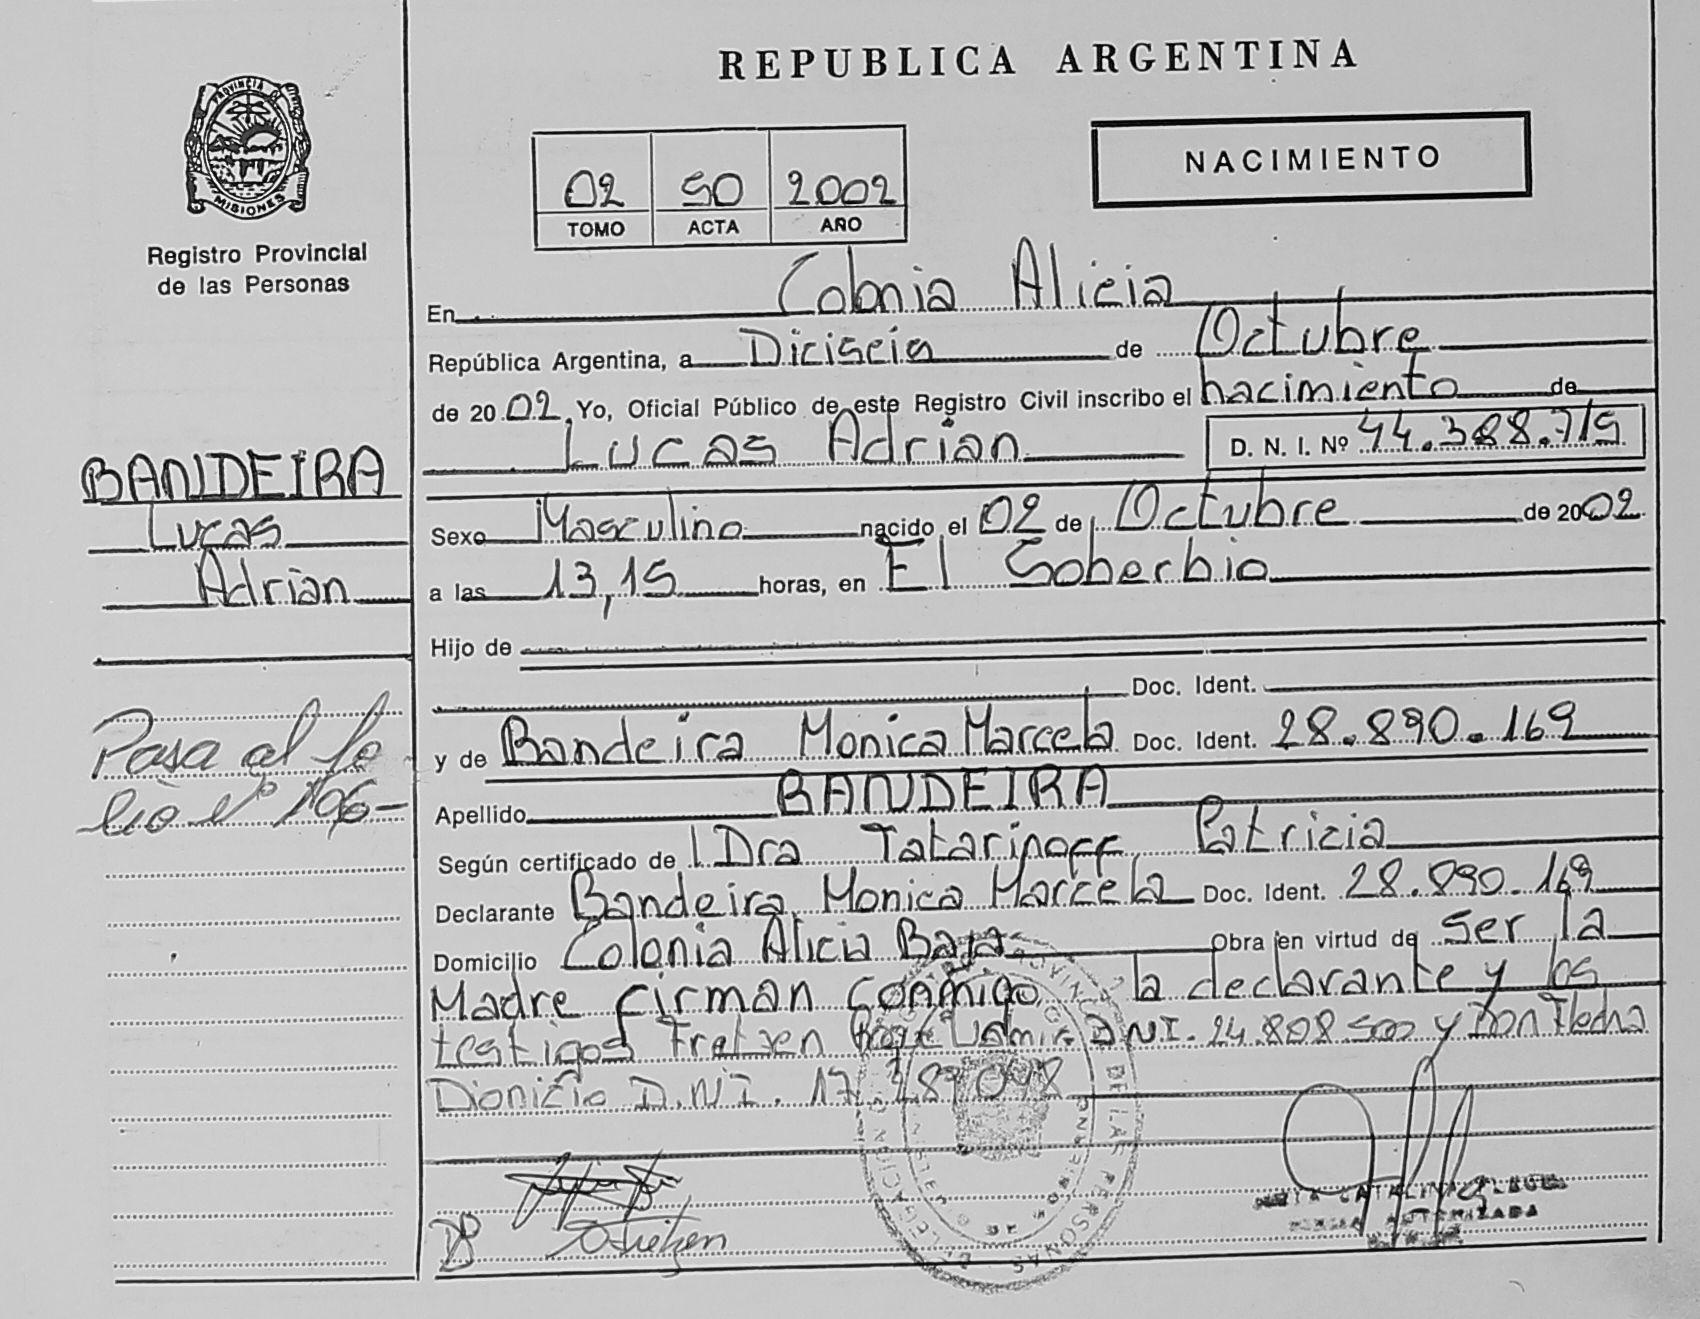 REPUBLICA ARGENTINA
PROVINCIA DE MISIONES
Registro Provincial
de las Personas
NACIMIENTO
02 50 2002
TOMO ACTA AÑO
En Colonia Alicia
República Argentina, a Diciseis de Octubre
de 2002, Yo, Oficial Público de este Registro Civil inscribo el nacimiento de
Lucas Adrian D. N. I. Nº 44.388.715
BANDEIRA
Lucas
Adrian
Sexo Masculino nacido el 02 de Octubre de 2002
a las 13,15 horas, en El Soberbio
Hijo de
Doc. Ident.
y de Bandeira Monica Marcela Doc. Ident. 28.890.169
Pasa al fo
lio Nº 106-
Apellido BANDEIRA
Según certificado de Dra Tatarinoff Patricia
Declarante Bandeira, Monica Marcela Doc. Ident. 28.890.169
Domicilio Colonia Alicia Baja. Obra en virtud de ser la
Madre firman conmigo la declarante y los
testigos Fretzen D.N.I. 24.808.500 y
Dionicio D.N.I. 17.
DE LAS PERSONAS
DELEGACION
AUTORIZADA